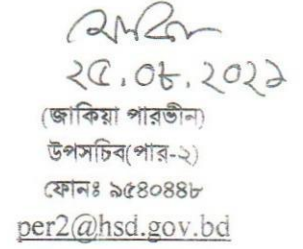 ২৫.০৮.২০২১
(জাকিয়া পারভীন)
উপসচিব(পার-২)
ফোনঃ ৯৫৪০৪৪৮
per2@hsd.gov.bd